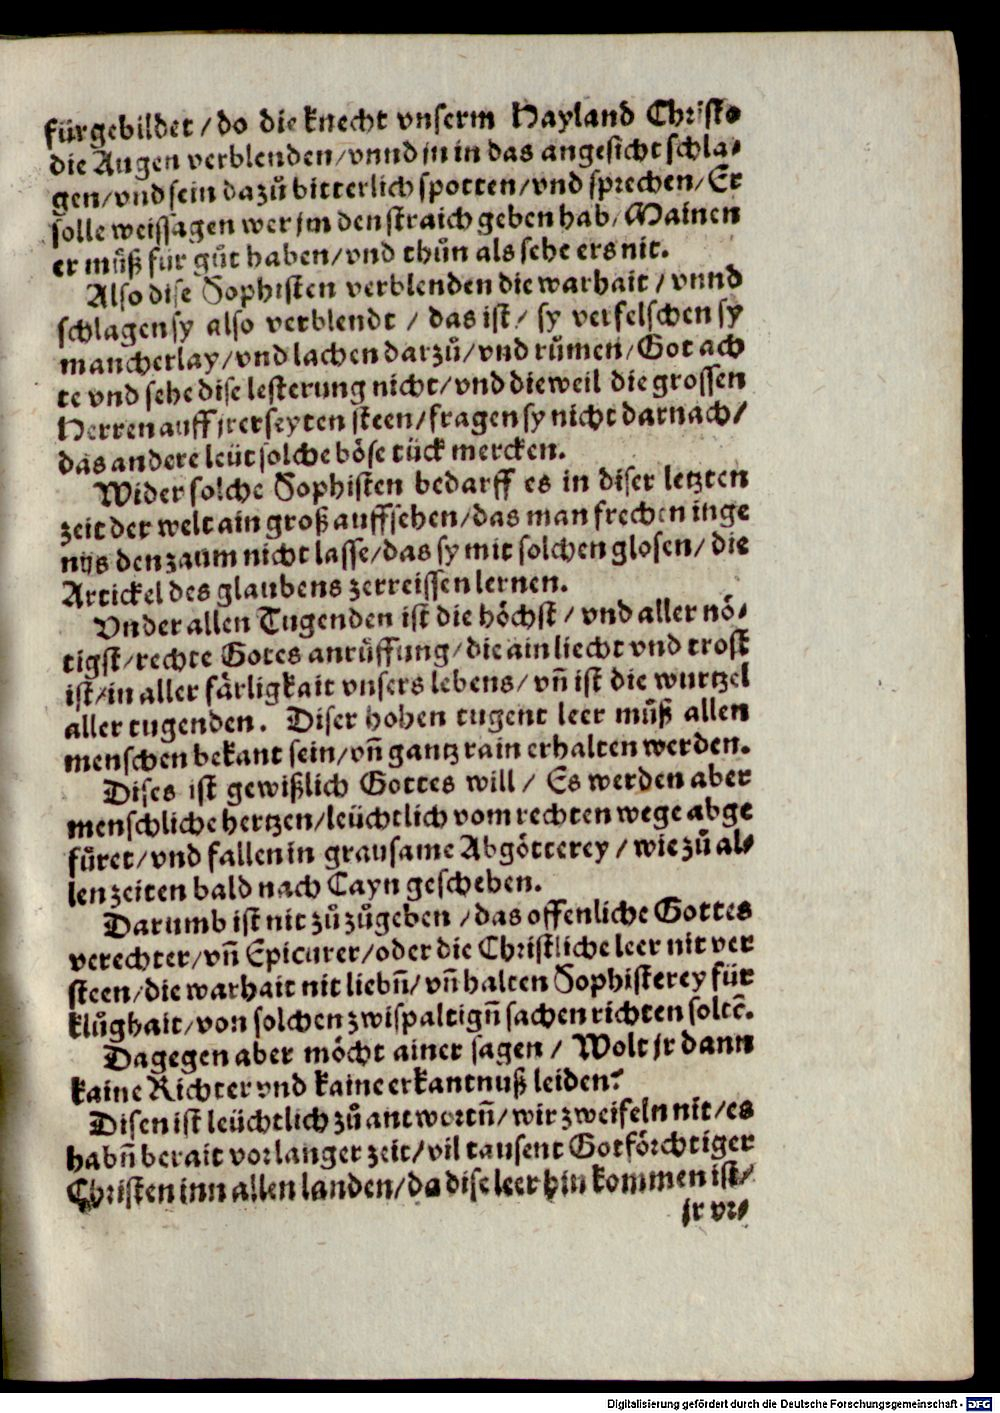 fürgebildet / do die knecht vnserm Hayland Christo
die Augen verblenden / vnnd jn in das angesicht schla⸗
gen / vnd sein dazů bitterlich spotten / vnd sprechen / Er
solle weissagen wer jm den straich geben hab / Mainen
er můß für gůt haben / vnd thůn als sehe ers nit.
Also dise Sophisten verblenden die warhait / vnnd
schlagen sy also verblendt / das ist / sy verfelschen sy
mancherlay / vnd lachen darzů / vnd růmen / Got ach
te vnd sehe dise lesterung nicht / vnd dieweil die grossen
Herren auff jrer seyten steen / fragen sy nicht darnach /
das andere leüt solche böse tück mercken.
Wider solche Sophisten bedarff es in diser letzten
zeit der welt ain groß auffsehen / das man frechen inge
nijs den zaum nicht lasse / das sy mit solchen glosen / die
Artickel des glaubens zerreissen lernen.
Vnder allen Tugenden ist die höchst / vnd aller nö⸗
tigst / rechte Gotes anrůffung / die ain liecht vnd trost
ist / in aller färligkait vnsers lebens / vñ ist die wurtzel
aller tugenden. Diser hohen tugent leer můß allen
menschen bekant sein / vñ gantz rain erhalten werden.
Dises ist gewißlich Gottes will / Es werden aber
menschliche hertzen / leüchtlich vom rechten wege abge
füret / vnd fallen in grausame Abgötterey / wie zů al⸗
len zeiten bald nach Cayn geschehen.
Darumb ist nit zů zůgeben / das offenliche Gottes
verechter / vñ Epicurer / oder die Christliche leer nit ver
steen / die warhait nit liebñ / vñ halten Sophisterey für
klůghait / von solchen zwispaltigñ sachen richten soltẽ.
Dagegen aber möcht ainer sagen / Wolt jr dann
kaine Richter vnd kaine erkantnuß leiden?
Disen ist leüchtlich zů antwortñ / wir zweifeln nit / es
habñ berait vor langer zeit / vil tausent Gotförchtiger
Christen inn allen landen / da dise leer hin kommen ist /
jr vr⸗
Digitalisierung gefördert durch die Deutsche Forschungsgemeinschaft - DFG